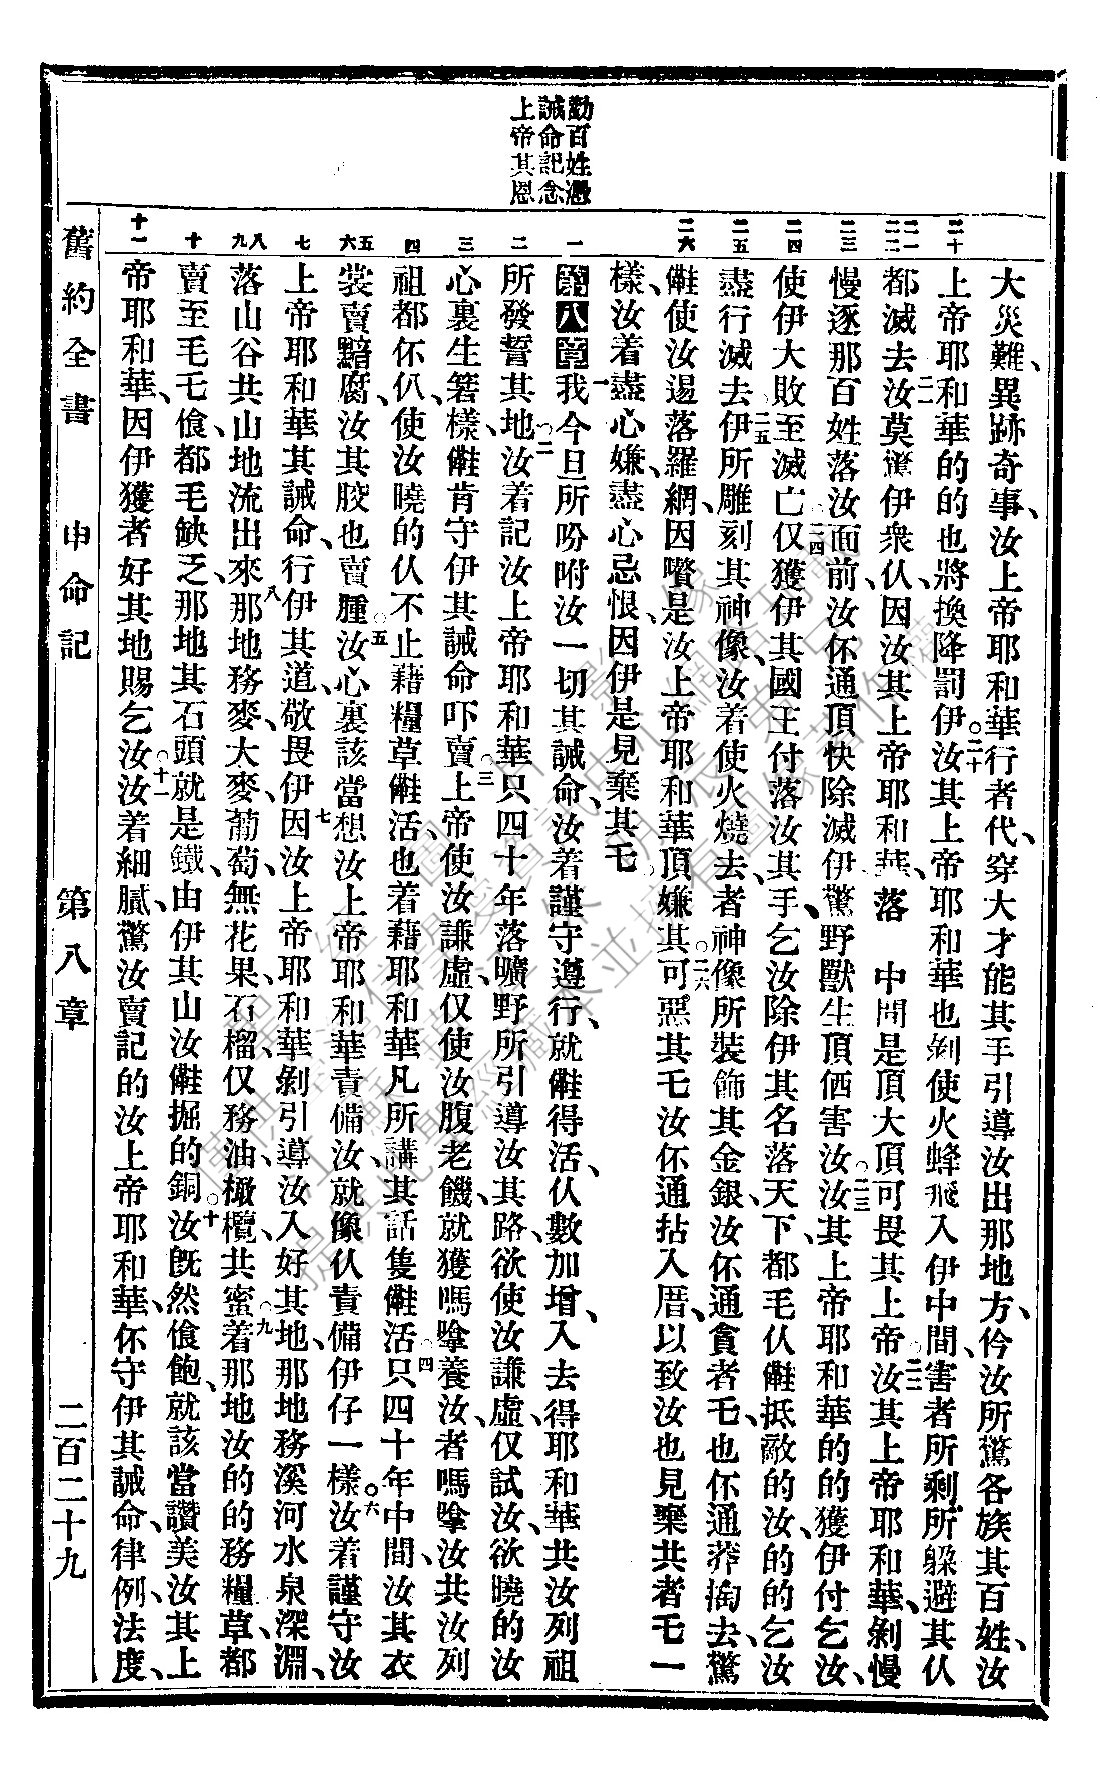 勸百姓憑
誡命記念
上帝其恩
二十
二一
二二
二三
二四
二五
二六
一
二
三
四
五
六
七
八
九
十
十一
大災難、異跡奇事、汝上帝耶和華行者代、穿大才能其手引導汝出那地方、仱汝所驚各族其百姓、汝
上帝耶和華的的也將換降罰伊。二十汝其上帝耶和華也剝使火蜂飛入伊中間、害者所剩所躲避其仈
都滅去。二一汝莫驚伊衆仈、因汝其上帝耶和華、落 中間是頂大頂可畏其上帝。二二汝其上帝耶和華、剝慢
慢逐那百姓落汝面前、汝伓通頂快除滅伊、驚野獸生頂侕害汝。二三汝其上帝耶和華的的獲伊付乞汝、
使伊大敗至滅亡。二四仅獲伊其國王付落汝其手、乞汝除伊其名落天下、都毛仈𠆧抵敵的汝、的的乞汝
盡行滅去。二五伊所雕刻其神像、汝着使火燒去、者神像所裝飾其金銀、汝伓通貪者乇、也伓通莽掏去、驚
𠆧使汝遏落羅網、因嚽是汝上帝耶和華頂嫌其。二六可惡其乇汝伓通拈入厝、以致汝也見棄共者乇一
樣、汝着盡心嫌、盡心忌恨、因伊是見棄其乇。
第八章 一我今旦所吩咐汝一切其誡命、汝着謹守遵行、就𠆧得活、仈數加增、入去得耶和華共汝列祖
所發誓其地。二汝着記汝上帝耶和華只四十年落曠野所引導汝其路、欲使汝謙虛、仅試汝、欲曉的汝
心裏生篛樣、𠆧肯守伊其誡命吓賣。三上帝使汝謙虛、仅使汝腹老饑、就獲嗎嗱養汝、者嗎嗱汝共汝列
祖都伓仈、使汝曉的仈不止藉糧草𠆧活、也着藉耶和華凡所講其話隻𠆧活。四只四十年中間、汝其衣
裳賣黯腐、汝其骹也賣腫。五汝心裏該當想汝上帝耶和華責備汝、就像仈責備伊仔一樣。六汝着謹守汝
上帝耶和華其誡命、行伊其道、敬畏伊。七因汝上帝耶和華剝引導汝入好其地、那地務溪河水泉深淵、
落山谷共山地流出來。八那地務麥、大麥、葡萄、無花果、石榴、仅務油橄欖共蜜。九着那地汝的的務糧草都
賣至毛乇食、都毛缺乏、那地其石頭就是鐵、由伊其山汝𠆧掘的銅。十汝旣然食飽、就該當讚美汝其上
帝耶和華、因伊獲者好其地賜乞汝。十一汝着細膩、驚汝賣記的汝上帝耶和華、伓守伊其誡命、律例、法度、
舊約全書 申命記 第八章 二百二十九